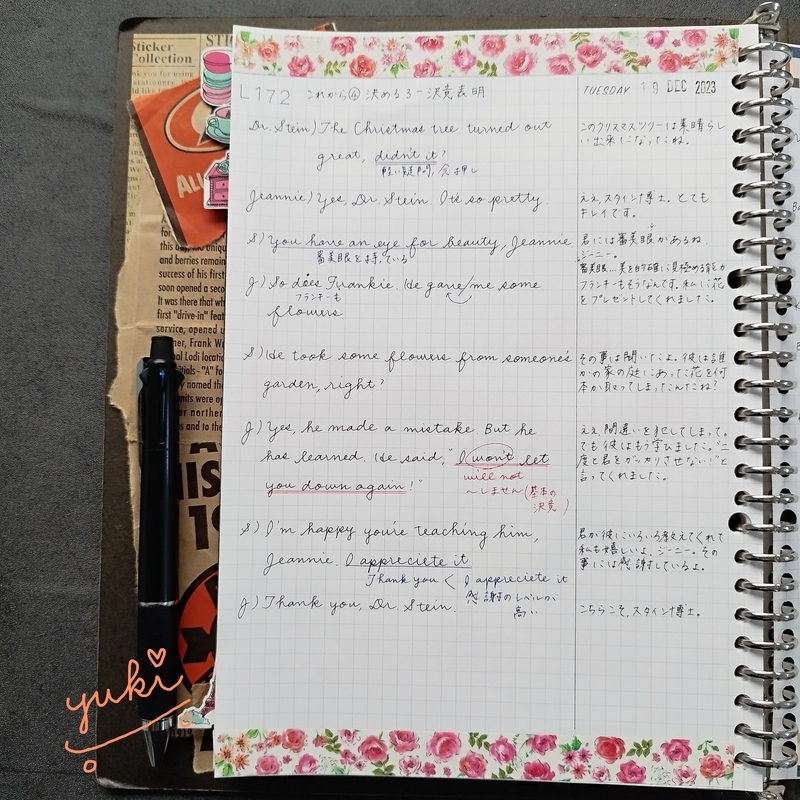 Sticker
Collection
STI
L172 これから④ 決める3-決意表明
TUESDAY 19 DEC 2023
Dr. Stein) The Christmas tree turned out
great, didn't it?
軽い疑問, 念押し
このクリスマスツリーは素晴らし
い出来になったね。
Jeannie) Yes, Dr. Stein. It's so pretty.
ええ, スタイン博士。とても
キレイです。
S) You have an eye for beauty, Jeannie
審美眼を持っている
君には審美眼があるね,
ジーニー。
審美眼…美を的確に見極める能力
J) So does Frankie. He gave me some
フランキーも
flowers.
フランキーもそうなんです。私に花
をプレゼントしてくれました。
S) He took some flowers from someone's
garden, right?
その事は聞いたよ。彼は誰
かの家の庭にあった花を何
本か取ってしまったんだね?
J) Yes, he made a mistake. But he
has learned. He said, "I won't let
you down again!"
will not
〜しません(基本の
決意)
ええ, 間違いを犯してしまって。
でも彼はもう学びました。"二
度と君をガッカリさせない!"と
言ってくれました。
S) I'm happy you're teaching him,
Jeannie. I appreciete it
Thank you < I appreciete it
感謝のレベルが
高い
君が彼にいろいろ教えてくれて
私も嬉しいよ, ジーニー。その
事には感謝しているよ。
J) Thank you, Dr. Stein.
こちらこそ, スタイン博士。
yuki